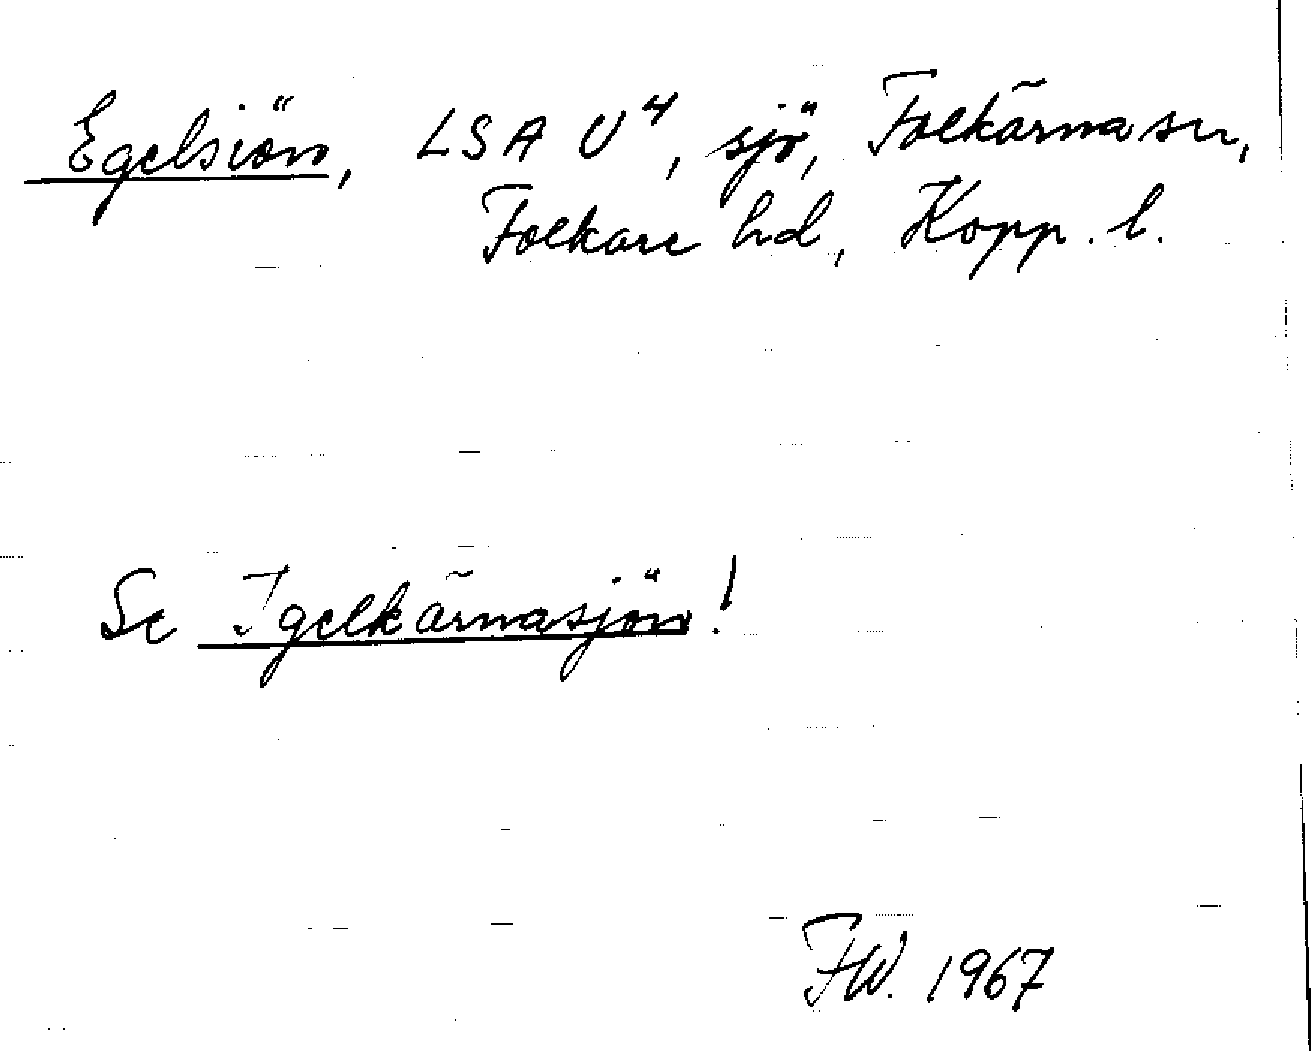 Egelsiön, LSA U⁴, sjö, Folkärna sn,
Folkare hd, Kopp. l.
Se Igelkärnasjön!
FW. 1967